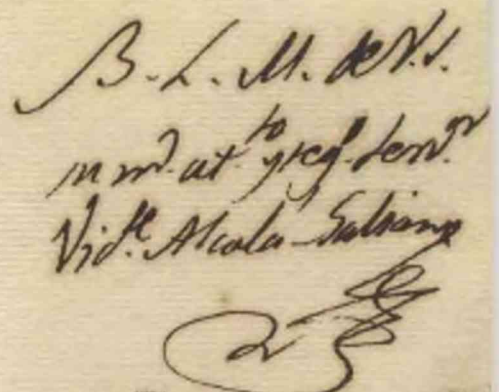 B. L. M. de V. S.
su m.r at.to y seg.o serv.or
Vic.te Alcala Galiano